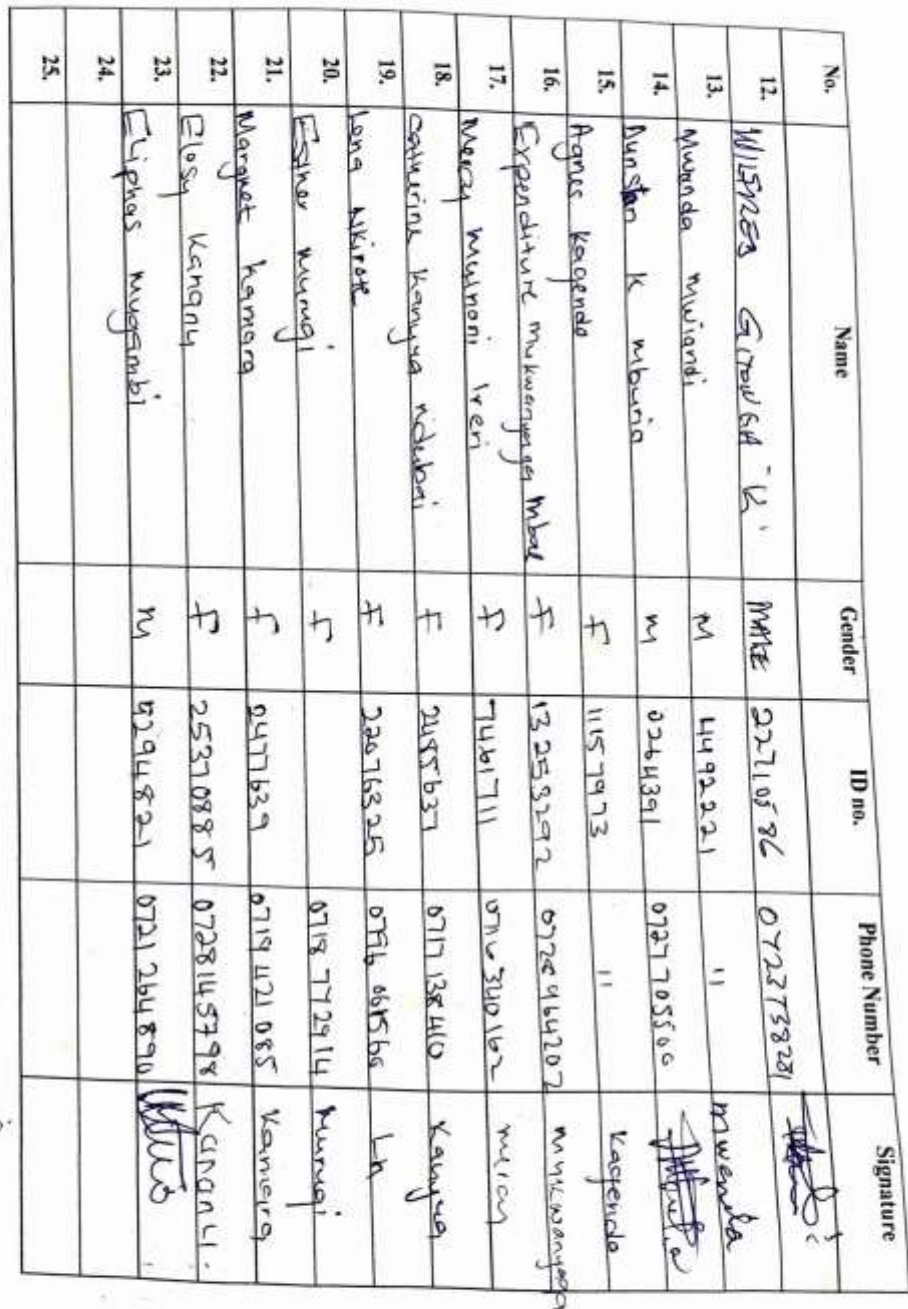 No. Name Gender ID no. Phone Number Signature
12. GITONGA "K" MALE 22710586 0723738281
13. Mwenda Mwiandi M 4492221 " Mwenda
14. Dunstan K Mburia M 0264391 0727705500
15. Agnes Kagendo F 11157973 " Kagendo
16. Expenditure Mukwanyaga Mbae F 13253292 0728964202 Mukwanyaga
17. Mercy Muthoni Ireri F 7461711 0716340162 Mercy
18. Catherine Kanyua F 2485637 0717138410 Kanyua
19. Lena Nkirote F 22076325 Ln
20. Esther Murugi F 0718772914 Murugi
21. Margret Kamara F 2477639 0719421085 Kamara
22. Elosy Kananu F 25370885 0728145798 Kananu.
23. Eliphas Mugambi M 5294821 0721264890
24.
25.